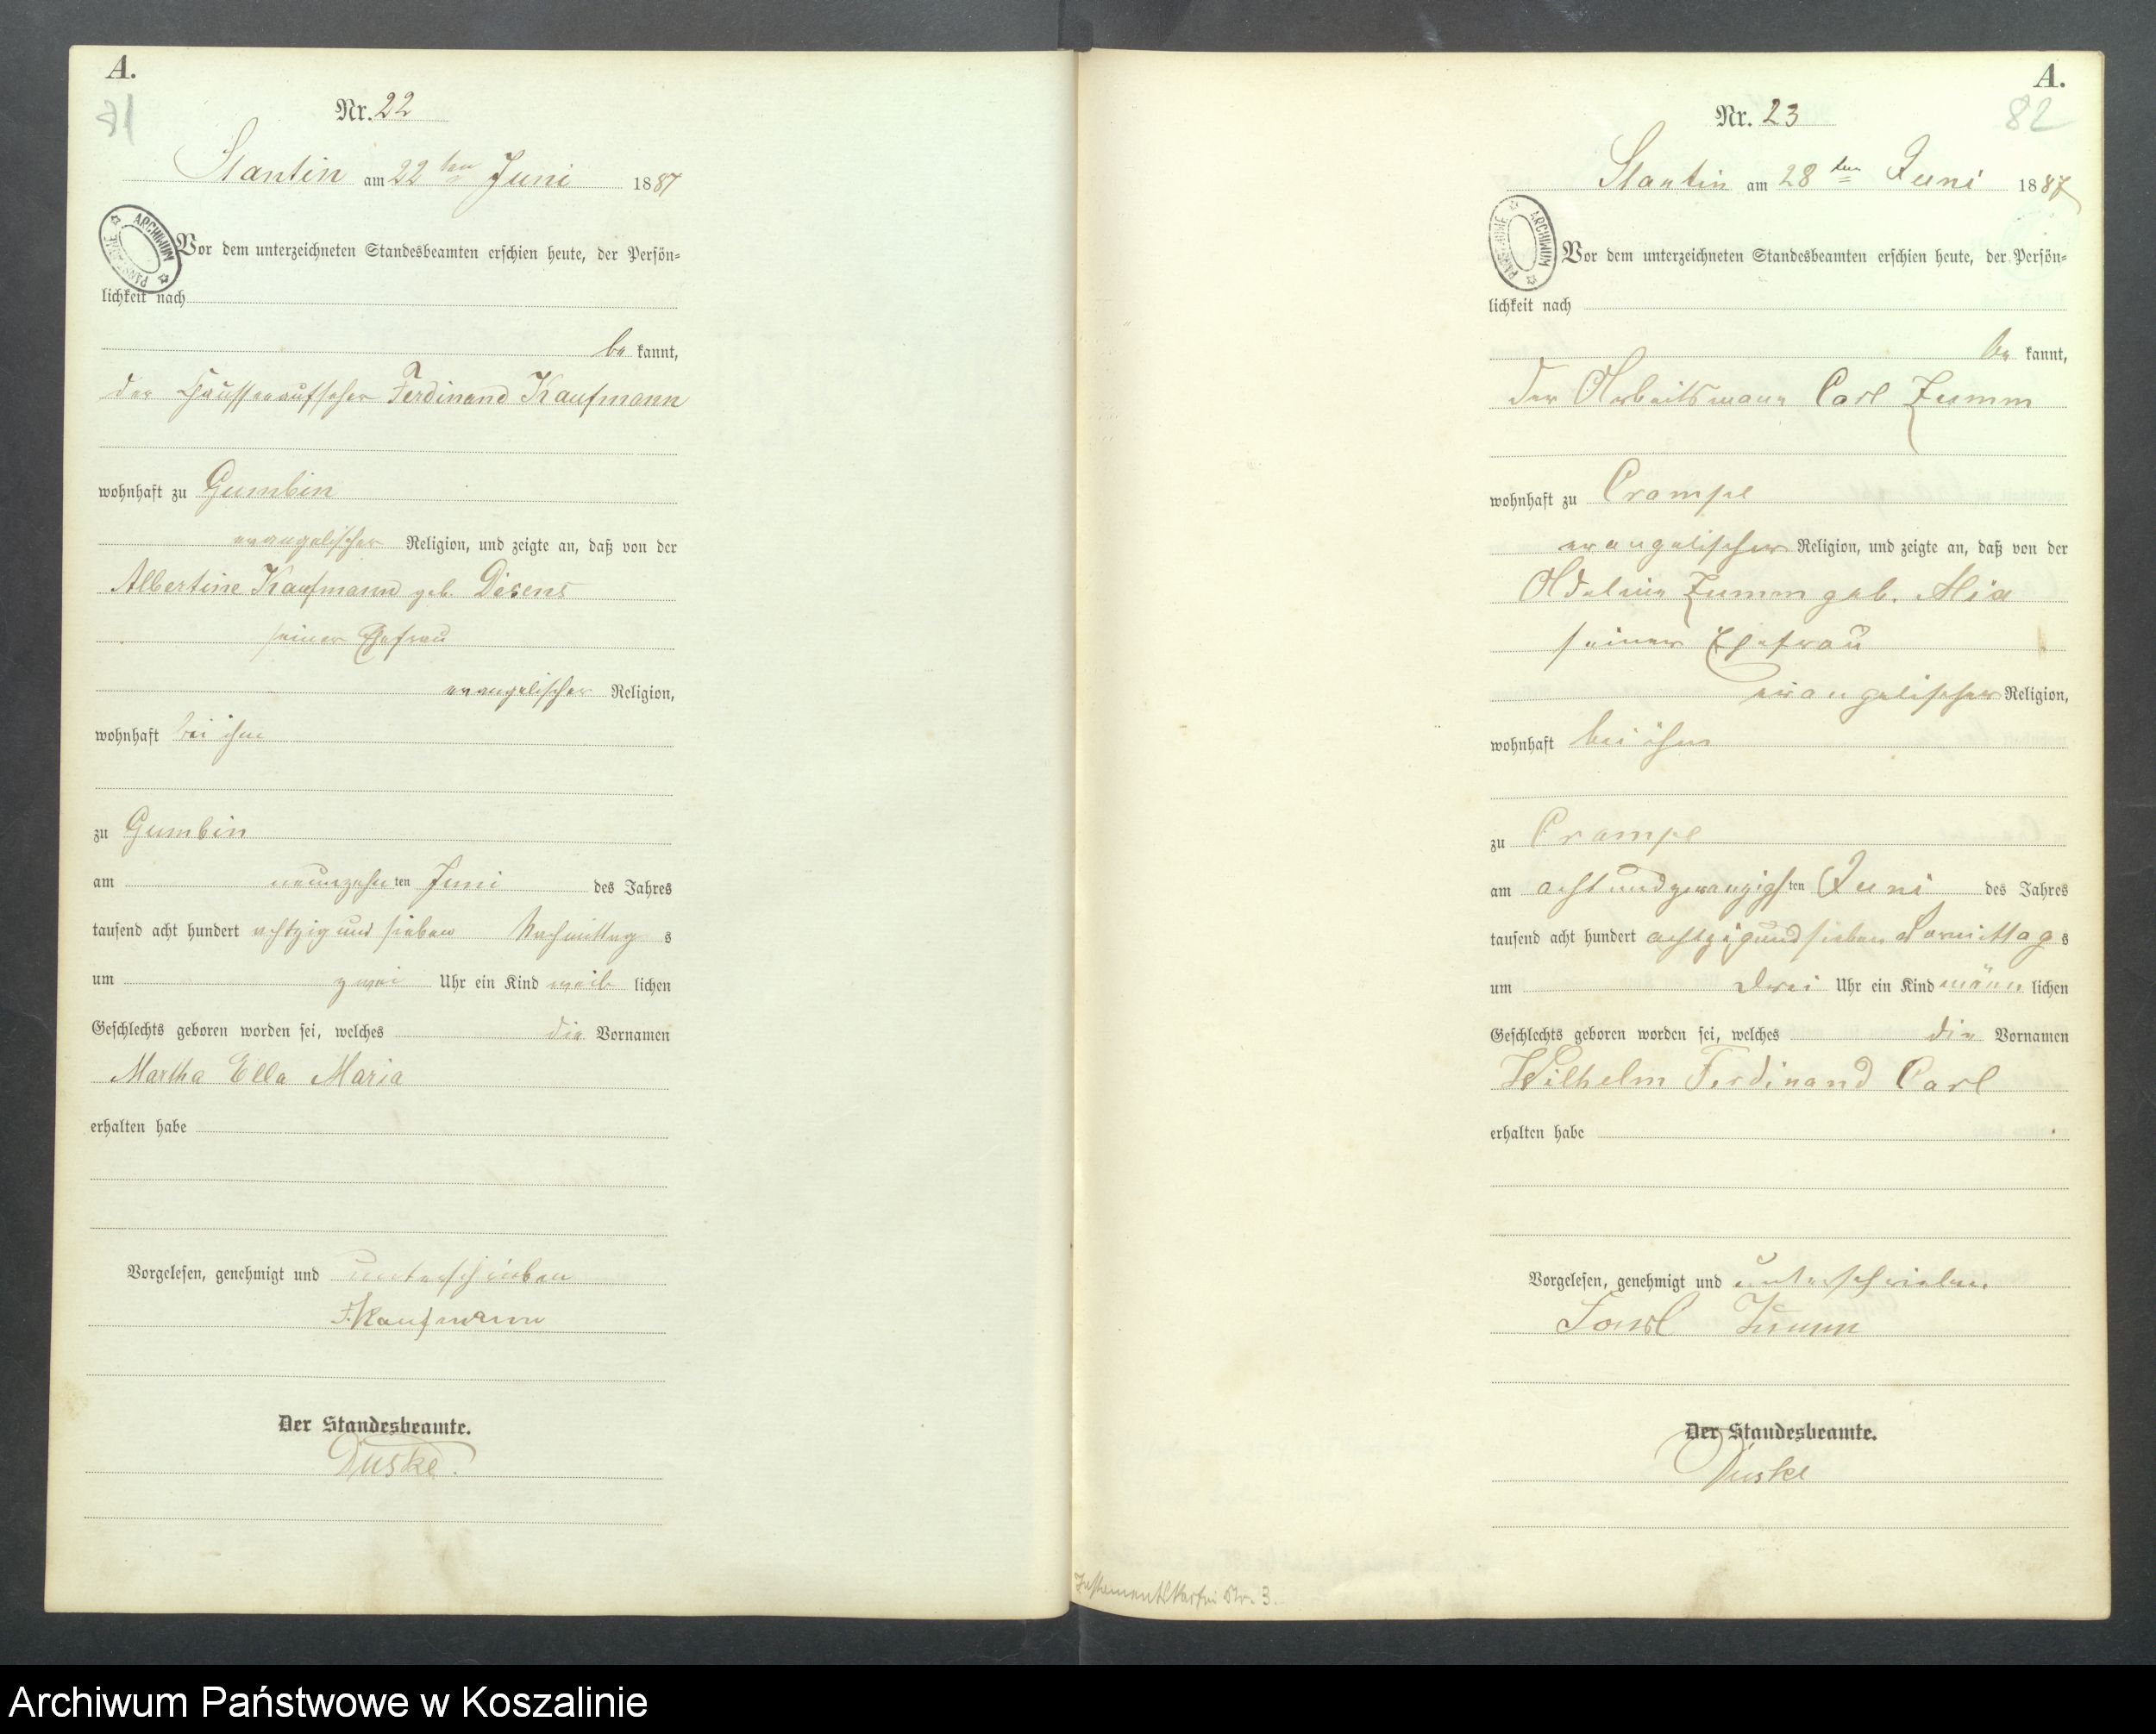 A.
Nr. 22
Stantin am 22 ten Juni 1887
ARCHIWUM PAŃSTWOWE
Vor dem unterzeichneten Standesbeamten erschien heute, der Persön=
lichkeit nach
be kannt,
der Chausseeaufseher Ferdinand Kaufmann
wohnhaft zu Gumbin
evangelischer Religion, und zeigte an, daß von der
Albertine Kaufmann geb.
seiner Ehefrau
evangelischer Religion,
wohnhaft bei ihm
zu Gumbin
am neunzehn ten Juni des Jahres
tausend acht hundert achtzig und sieben Nachmittag s
um zwei Uhr ein Kind weib lichen
Geschlechts geboren worden sei, welches die Vornamen
Martha Ella Maria
erhalten habe
Vorgelesen, genehmigt und unterschrieben
F. Kaufmann
Der Standesbeamte.
Duske.
A.
82
Nr. 23
Stantin am 28 ten Juni 1887
ARCHIWUM PAŃSTWOWE
Vor dem unterzeichneten Standesbeamten erschien heute, der Persön=
lichkeit nach
be kannt,
der Arbeitsmann Carl Zumm
wohnhaft zu Crampe
evangelischer Religion, und zeigte an, daß von der
Zumm geb.
seiner Ehefrau
evangelischer Religion,
wohnhaft bei ihm
zu Crampe
am achtundzwanzigsten Juni des Jahres
tausend acht hundert achtzigundsieben Vormittag s
um drei Uhr ein Kind männ lichen
Geschlechts geboren worden sei, welches die Vornamen
Wilhelm Ferdinand Carl
erhalten habe
Vorgelesen, genehmigt und unterschrieben.
Zumm
Der Standesbeamte.
Duske
Nr. 3.
Archiwum Państwowe w Koszalinie